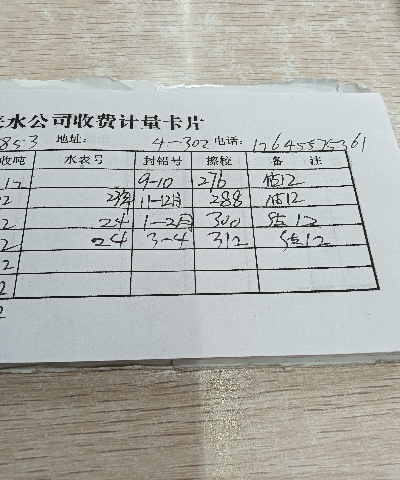 水公司收费计量卡片
853 地址: 4-302 电话: 17645575361
收吨 水表号 封铅号 擦校 备 注
12 9-10 276 估12
2 23年 11-12月 288 估12
2 24 1-2月 300 估12
2 24 3-4 312 估12
2
2
2